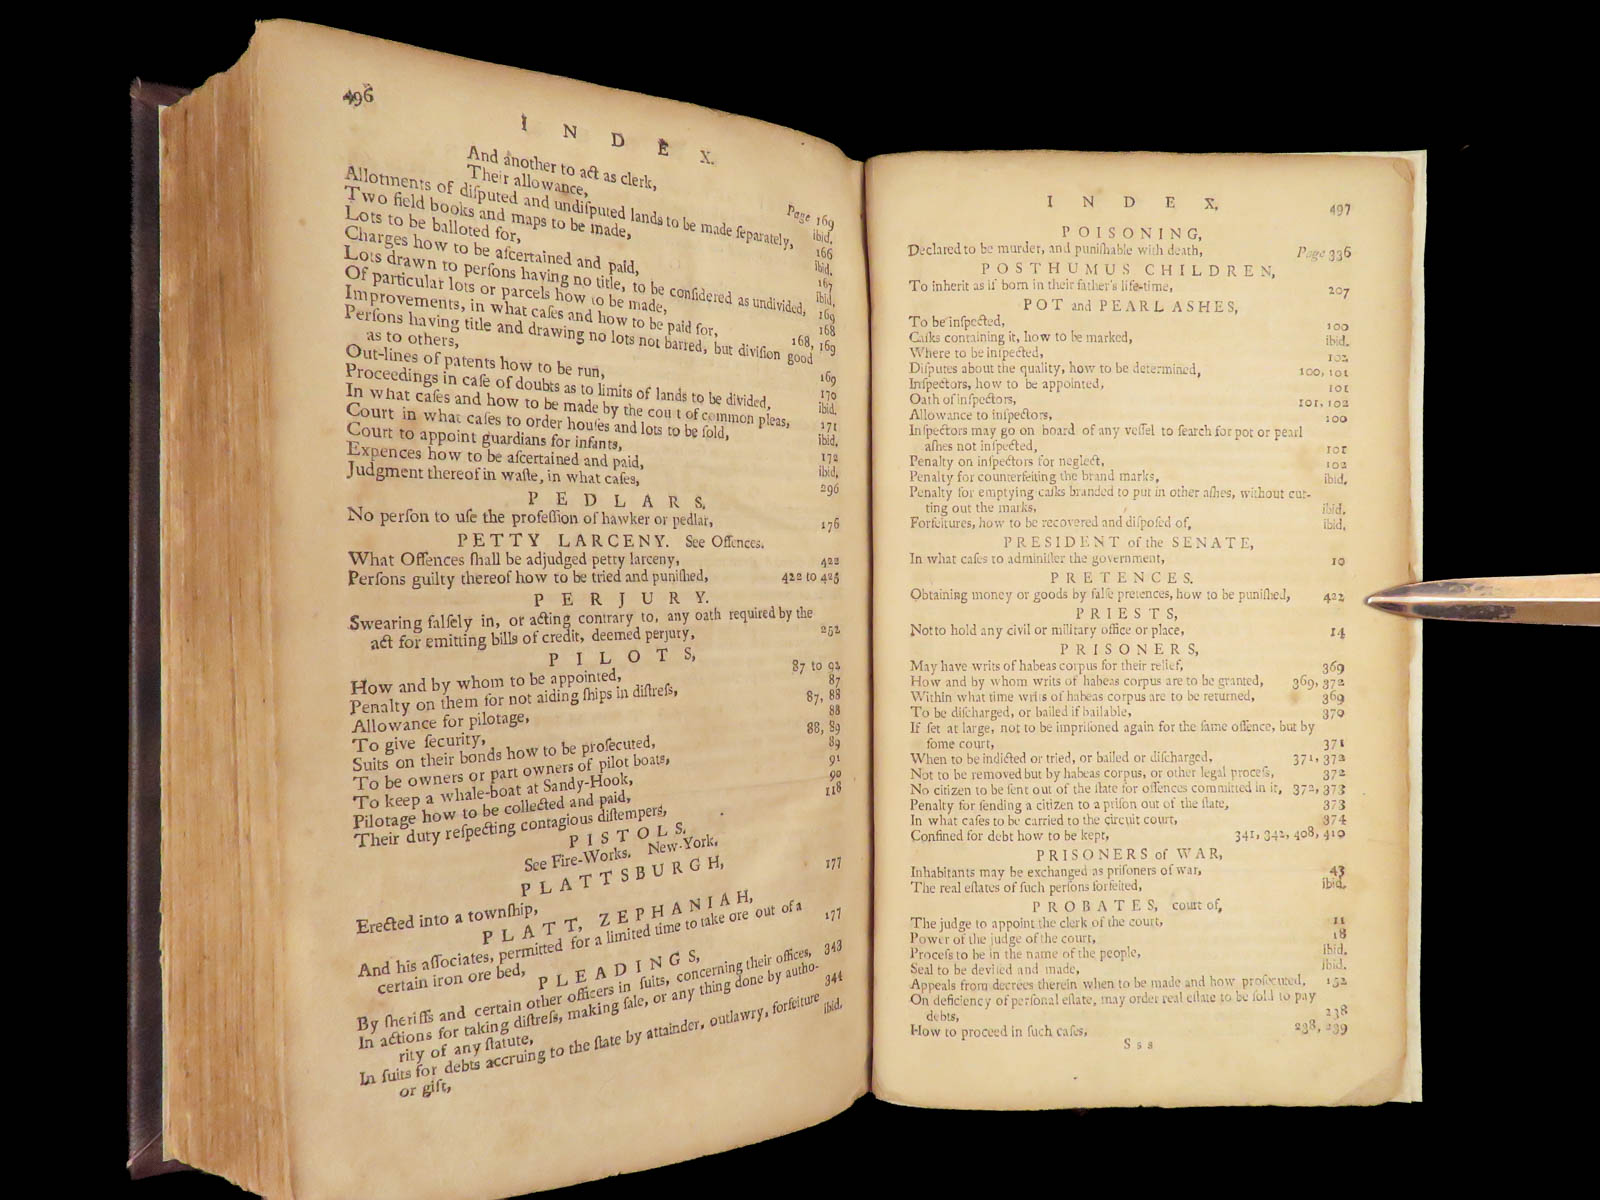 496
I N D E X.
And another to act as clerk,
Their allowance, Page 169
Allotments of diſputed and undiſputed lands to be made ſeparately, ibid.
Two field books and maps to be made, 166
Lots to be balloted for, ibid.
Charges how to be aſcertained and paid, 167
Lots drawn to perſons having no title, to be conſidered as undivided, ibid.
Of particular lots or parcels how to be made, 169
Improvements, in what caſes and how to be paid for, 168
Perſons having title and drawing no lots not barred, but diviſion good 168, 169
as to others,
Out-lines of patents how to be run, 169
Proceedings in caſe of doubts as to limits of lands to be divided, 170
In what caſes and how to be made by the court of common pleas, ibid.
Court in what caſes to order houſes and lots to be ſold, 171
Court to appoint guardians for infants, ibid.
Expences how to be aſcertained and paid, 172
Judgment thereof in waſte, in what caſes, ibid.
296
P E D L A R S,
No perſon to uſe the profeſſion of hawker or pedlar, 176
PETTY LARCENY. See Offences.
What Offences ſhall be adjudged petty larceny, 422
Perſons guilty thereof how to be tried and puniſhed, 422 to 425
P E R J U R Y.
Swearing falſely in, or acting contrary to, any oath required by the
act for emitting bills of credit, deemed perjury, 252
P I L O T S,
How and by whom to be appointed, 87 to 92
Penalty on them for not aiding ſhips in diſtreſs, 87
Allowance for pilotage, 87, 88
To give ſecurity, 88
Suits on their bonds how to be proſecuted, 88, 89
To be owners or part owners of pilot boats, 89
To keep a whale-boat at Sandy-Hook, 91
Pilotage how to be collected and paid, 90
Their duty reſpecting contagious diſtempers, 118
P I S T O L S.
See Fire-Works. New-York.
P L A T T S B U R G H,
Erected into a townſhip, 177
P L A T T, Z E P H A N I A H,
And his aſſociates, permitted for a limited time to take ore out of a
certain iron ore bed, 177
P L E A D I N G S,
By ſheriffs and certain other officers in ſuits, concerning their offices, 343
In actions for taking diſtreſs, making ſale, or any thing done by autho-
rity of any ſtatute, 344
In ſuits for debts accruing to the ſtate by attainder, outlawry, forfeiture
or gift, ibid.
I N D E X, 497
POISONING,
Declared to be murder, and puniſhable with death, Page 336
POSTHUMUS CHILDREN,
To inherit as if born in their father's life-time, 207
POT and PEARL ASHES,
To be inſpected, 100
Caſks containing it, how to be marked, ibid.
Where to be inſpected, 102
Diſputes about the quality, how to be determined, 100, 101
Inſpectors, how to be appointed, 101
Oath of inſpectors, 101, 102
Allowance to inſpectors, 100
Inſpectors may go on board of any veſſel to ſearch for pot or pearl
aſhes not inſpected, 101
Penalty on inſpectors for neglect, 102
Penalty for counterfeiting the brand marks, ibid.
Penalty for emptying caſks branded to put in other aſhes, without cut-
ting out the marks, ibid.
Forfeitures, how to be recovered and diſpoſed of, ibid.
PRESIDENT of the SENATE,
In what caſes to adminiſter the government, 10
PRETENCES.
Obtaining money or goods by falſe pretences, how to be puniſhed, 422
PRIESTS,
Not to hold any civil or military office or place, 14
PRISONERS,
May have writs of habeas corpus for their relief, 369
How and by whom writs of habeas corpus are to be granted, 369, 372
Within what time writs of habeas corpus are to be returned, 369
To be diſcharged, or bailed if bailable, 370
If ſet at large, not to be impriſoned again for the ſame offence, but by
ſome court, 371
When to be indicted or tried, or bailed or diſcharged, 371, 372
Not to be removed but by habeas corpus, or other legal proceſs, 372
No citizen to be ſent out of the ſtate for offences committed in it, 372, 373
Penalty for ſending a citizen to a priſon out of the ſtate, 373
In what caſes to be carried to the circuit court, 374
Confined for debt how to be kept, 341, 342, 408, 410
PRISONERS of WAR,
Inhabitants may be exchanged as priſoners of war, 43
The real eſtates of ſuch perſons forfeited, ibid.
PROBATES, court of,
The judge to appoint the clerk of the court, 11
Power of the judge of the court, 18
Proceſs to be in the name of the people, ibid.
Seal to be deviſed and made, ibid.
Appeals from decrees therein when to be made and how proſecuted, 152
On deficiency of perſonal eſtate, may order real eſtate to be ſold to pay
debts, 238
How to proceed in ſuch caſes, 238, 239
S s s